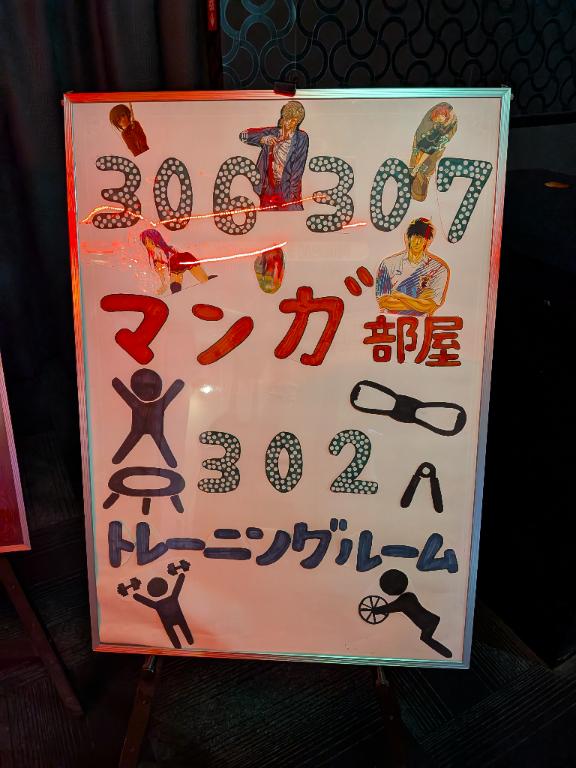 306 307
マンガ部屋
302
トレーニングルーム